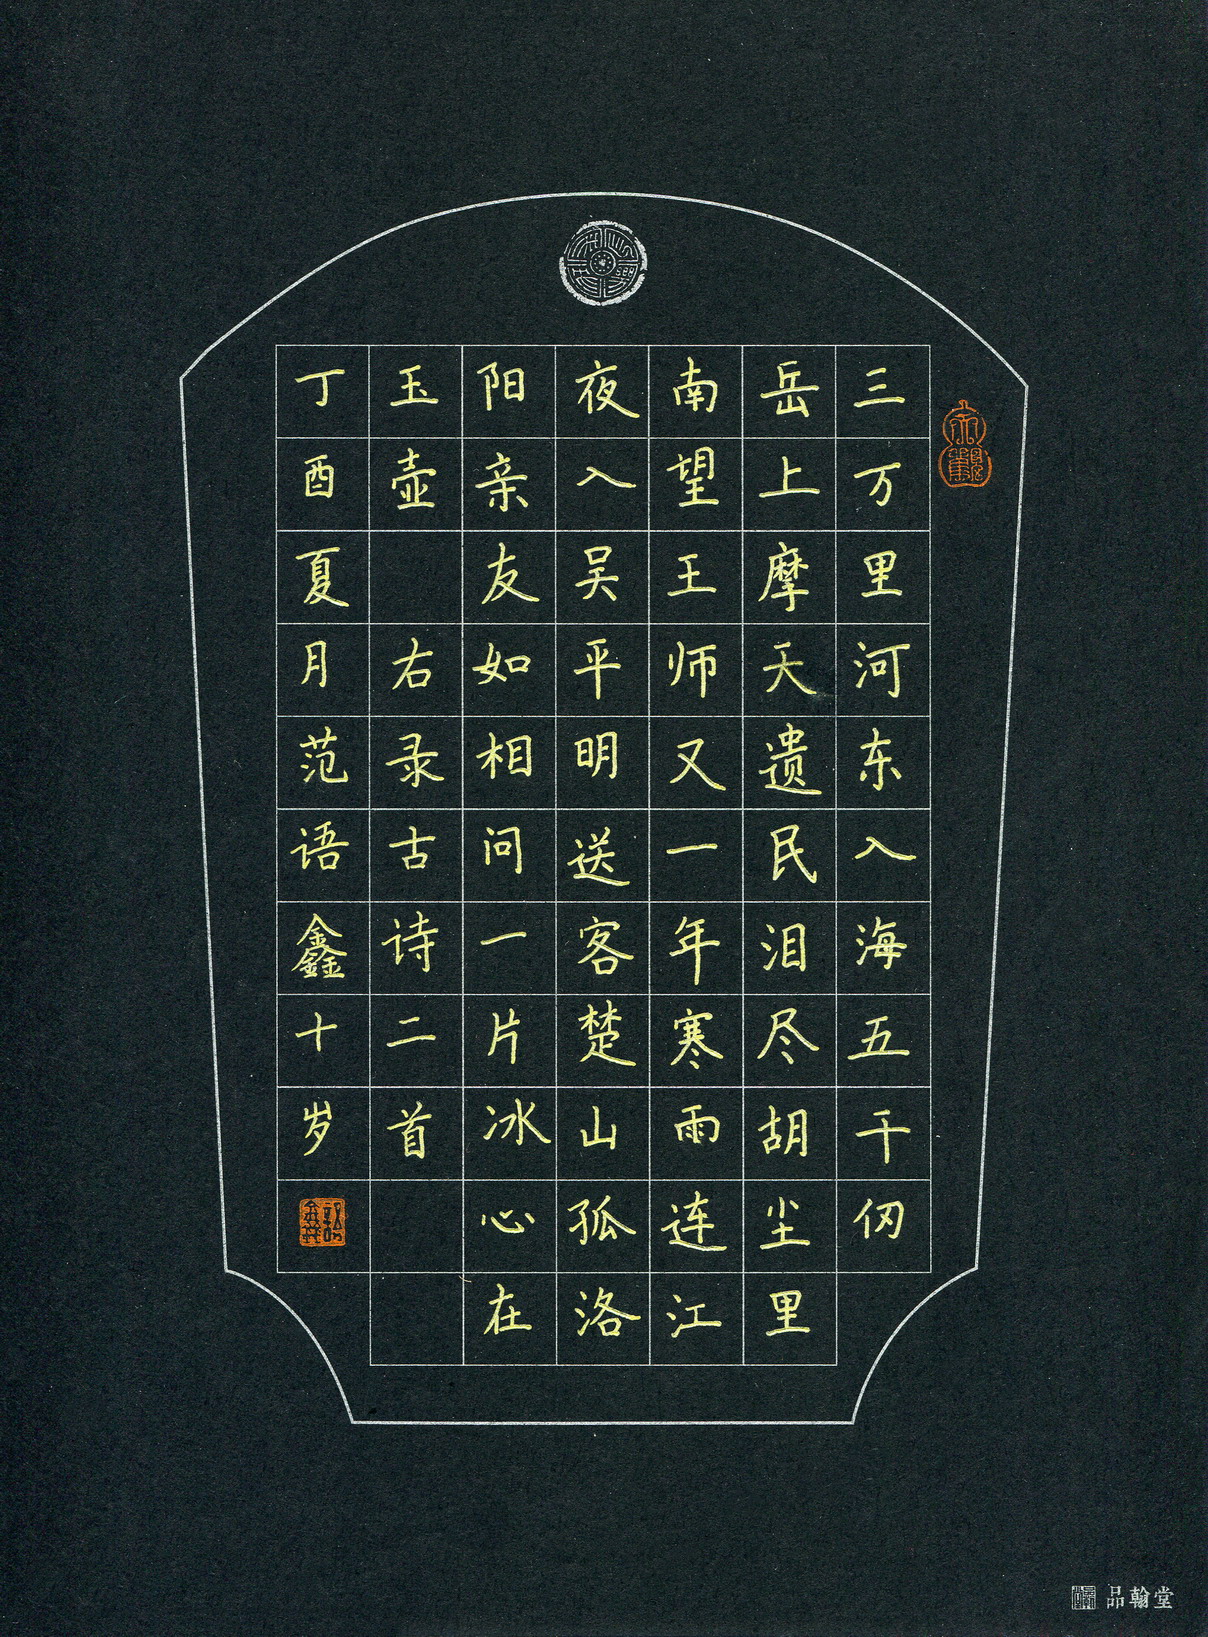 三万里河东入海五千仞
岳上摩天遗民泪尽胡尘里
南望王师又一年寒雨连江
夜入吴平明送客楚山孤洛
阳亲友如相问一片冰心在
玉壶 右录古诗二首
丁酉夏月范语鑫十岁
品翰堂